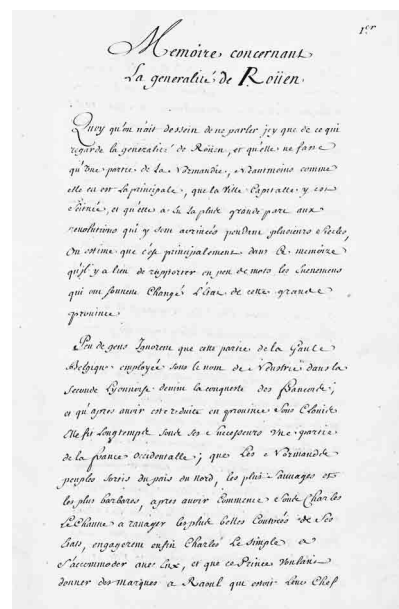 1.er
Memoire concernant
La generalité de Roüen
Quoy qu'on n'ait dessein de ne parler jcy que de ce qui
regarde la generalité de Roüen, et qu'elle ne fasse
qu'une partie de La Normandie, Neantmoins comme
elle en est La principale, que la Ville Capitalle y est
scituée, et qu'elle a eu La plus grande part aux
revolutions qui y sont arrivées pendant plusieurs siecles,
On estime que c'est principalement dans ce memoire
qu'il y a lieu de rapporter en peu de mots les Evenemens
qui ont souvent Changé L'Etat de cette grande
province
Peu de gens Ignorent que cette partie de la Gaule
Belgique employée sous le nom de Neustrie dans la
Seconde Lyonnoise devint la conqueste des francois;
et qu'apres avoir esté reduite en province sous Clouis
elle fit Longtemps sous ses successeurs une partie
de la france occidentalle; que Les Normands
peuples sortis du païs du nord, les plus sauvages et
les plus barbares, apres avoir Commencé sous Charles
Le Chauve a ravager les plus belles Contrées de Ses
Etats, engagerent enfin Charles Le simple a
s'accommoder avec Eux, et que ce Prince voulant
donner des marques a Raoul qui estoit Leur Chef